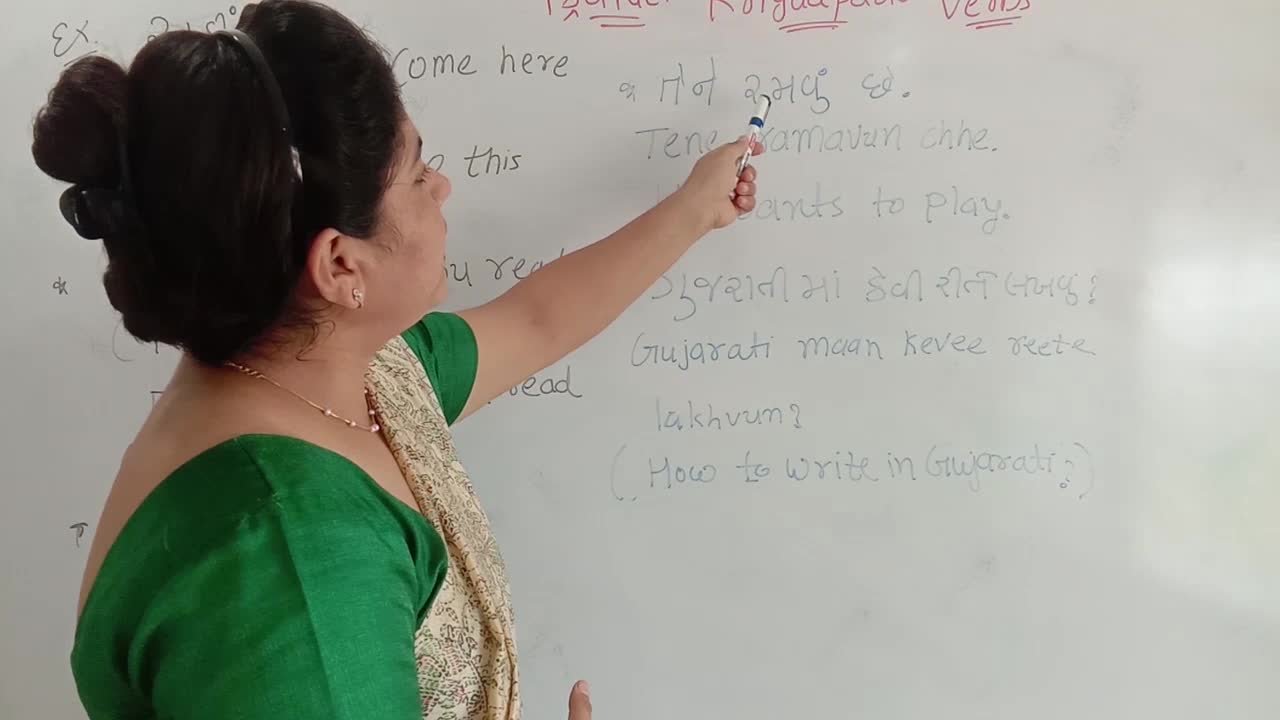 Kriyaapado Verbs
Ex.
Come here
this
read
read
* તેને રમવું છે.
Tene ramavun chhe.
wants to play.
ગુજરાતી માં કેવી રીતે લખવું?
Gujarati maan kevee reete
lakhvun?
(How to write in Gujarati?)